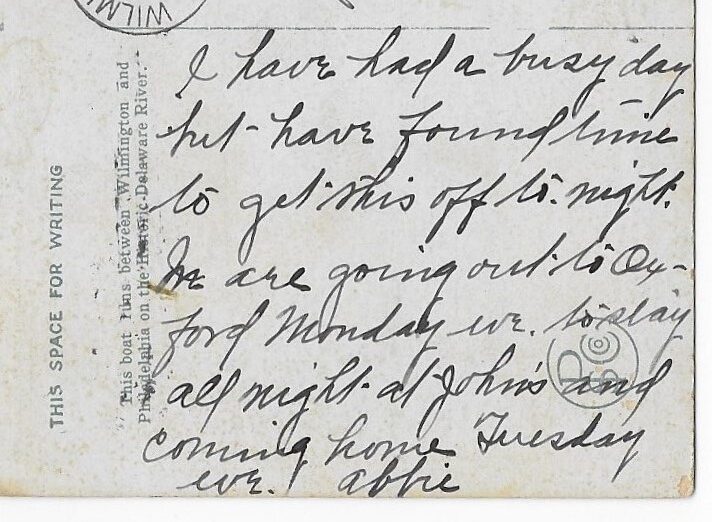 WILM
I have had a busy day
but have found time
to get this off to-night.
We are going out to Ox-
ford Monday eve. to stay
all night at John's and
coming home Tuesday
eve. Abbie
THIS SPACE FOR WRITING
This boat runs between Wilmington and
Philadelphia on the Historic Delaware River.